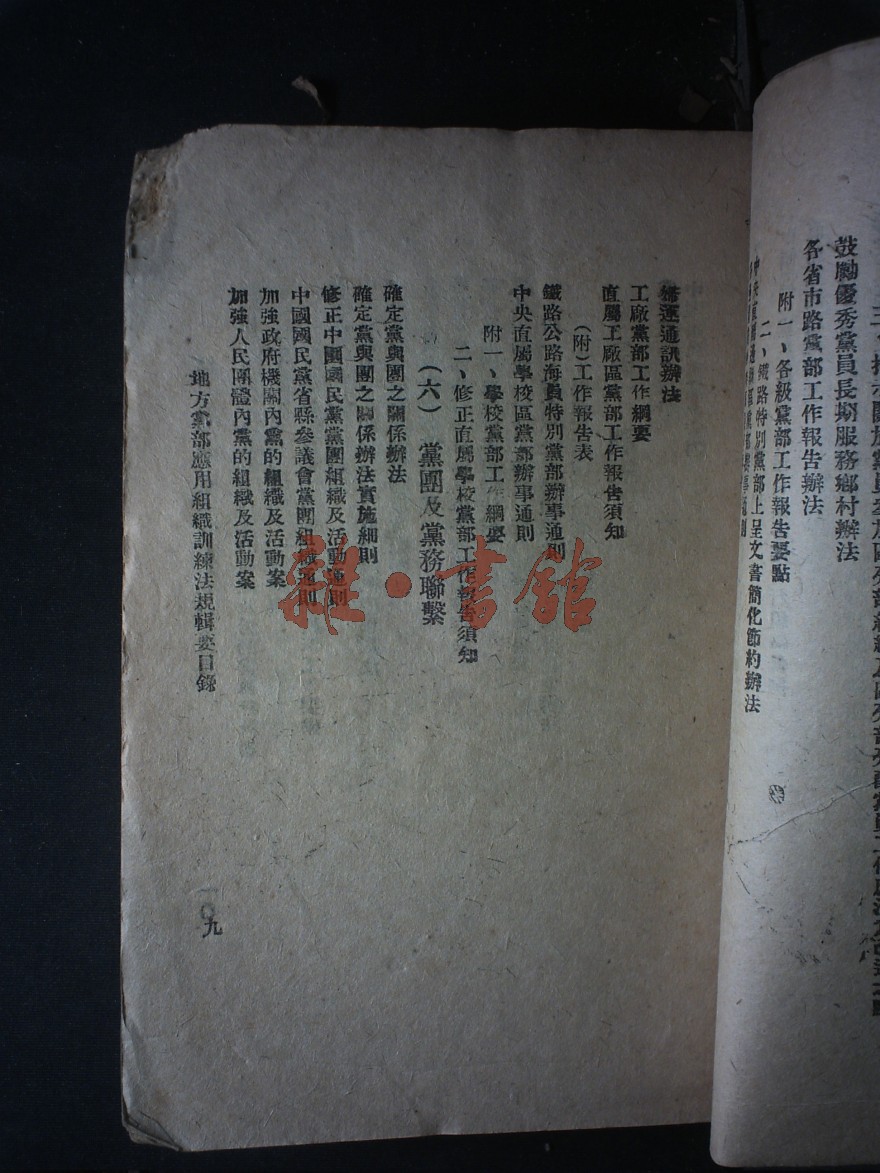 鼓勵優秀黨員長期服務鄉村辦法
各省市路黨部工作報告辦法
附一、各級黨部工作報告要點
二、鐵路特別黨部上呈文書簡化節約辦法
婦運通訊辦法
工廠黨部工作綱要
直屬工廠區黨部工作報告須知
(附)工作報告表
鐵路公路海員特別黨部辦事通則
中央直屬學校區黨部辦事通則
附一、學校黨部工作綱要
二、修正直屬學校黨部工作報告須知
(六) 黨團及黨務聯繫
確定黨與團之關係辦法
確定黨與團之關係辦法實施細則
修正中國國民黨黨團組織及活動通則
中國國民黨省縣參議會黨團組織通則
加強政府機關內黨的組織及活動案
加強人民團體內黨的組織及活動案
地方黨部應用組織訓練法規輯要目錄
一〇九
雜·書館